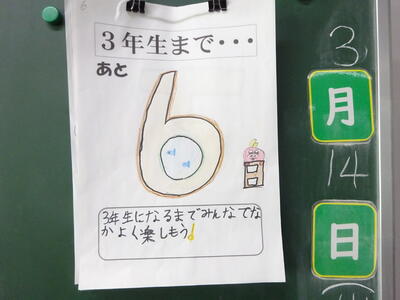 6
3年生まで・・・
あと
6
3年生になるまでみんなでな
かよく楽しもう!
3
月
14
日